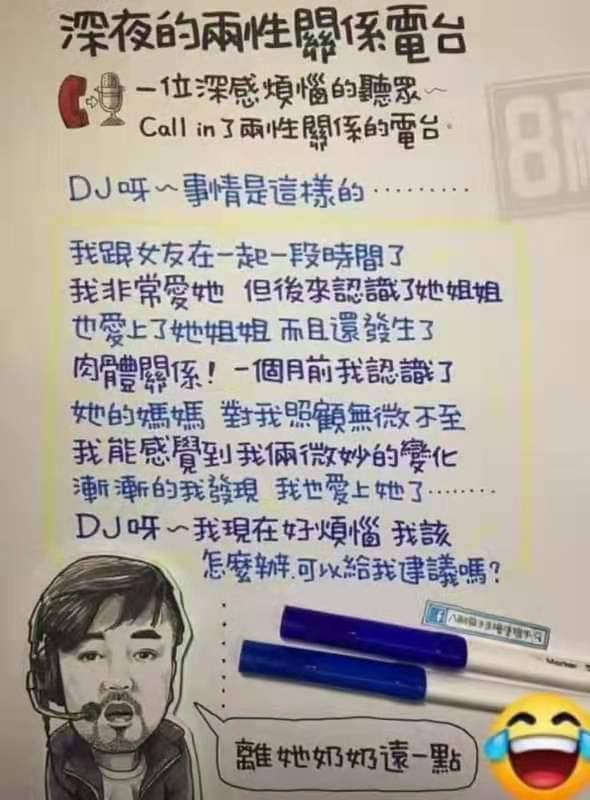 深夜的兩性關係電台
一位深感煩惱的聽眾~
Call in了兩性關係的電台。
DJ呀~事情是這樣的………
我跟女友在一起一段時間了
我非常愛她 但後來認識了她姐姐
也愛上了她姐姐 而且還發生了
肉體關係! 一個月前我認識了
她的媽媽 對我照顧無微不至
我能感覺到我倆微妙的變化
漸漸的我發現 我也愛上她了……..
DJ呀~我現在好煩惱 我該
怎麼辦.可以給我建議嗎?
Marker
離她奶奶遠一點